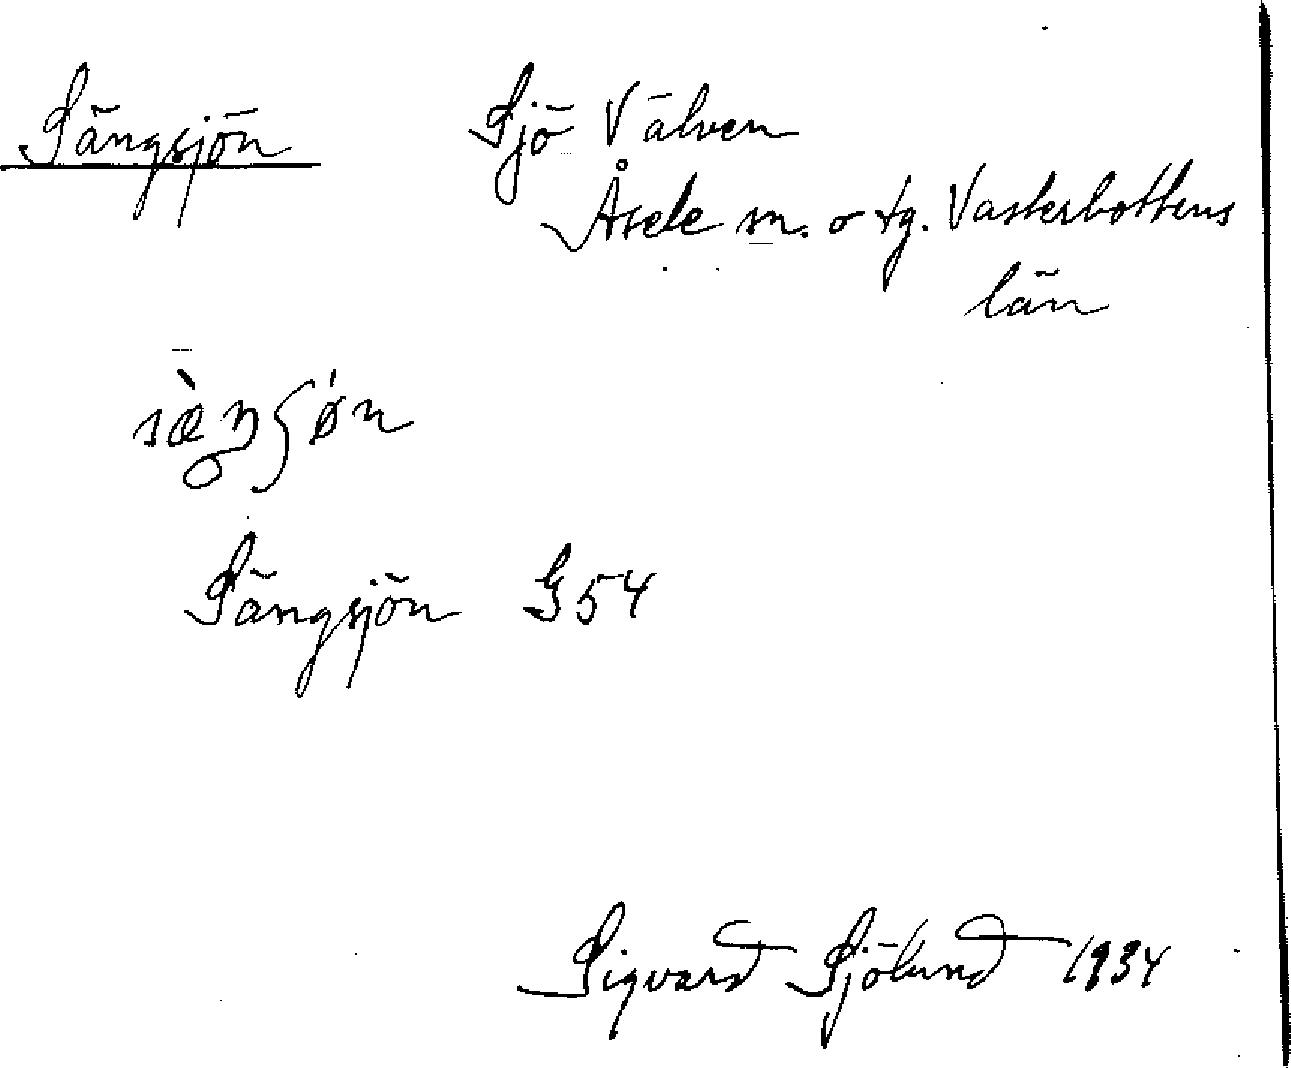 Sängsjön Sjö Välven
Åsele sn. o tg. Västerbottens
län
sæ̀ŋʃøn
Sängsjön G 54
Sigvard Sjölund 1934